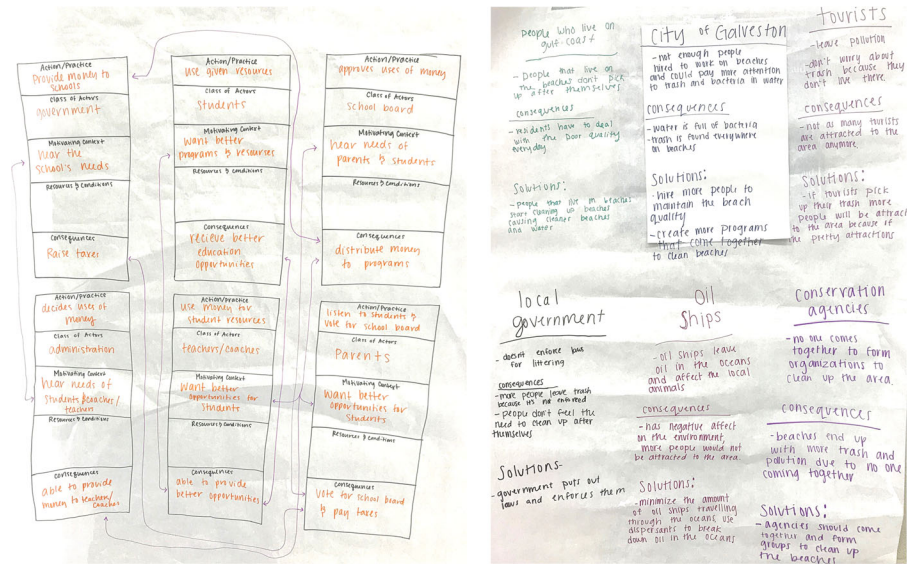 Action/Practice
Provide money to
schools
Class of Actors
government
Motivating Context
hear the
school's needs
Resources & Conditions
Consequences
Raise taxes
Action/Practice
use given resources
Class of Actors
students
Motivating Context
want better
programs & resources
Resources & Conditions
Consequences
recieve better
education
opportunities
Action/Practice
approves uses of money
Class of Actors
school board
Motivating Context
hear needs of
parents & students
Resources & Conditions
Consequences
distribute money
to programs
Action/Practice
decides uses of
money
Class of Actors
administration
Motivating Context
hear needs of
students/coaches/
teachers
Resources & Conditions
Consequences
able to provide
money to teachers/
coaches
Action/Practice
use money for
student resources
Class of Actors
teachers/coaches
Motivating Context
want better
opportunities for
students
Resources & Conditions
Consequences
able to provide
better opportunities
Action/Practice
listen to students &
vote for school board
Class of Actors
Parents
Motivating Context
want better
opportunities for
students
Resources & Conditions
Consequences
vote for school board
& pay taxes
people who live on
gulf-coast
- people that live on
the beaches don't pick
up after themselves
consequences
- residents have to deal
with the poor quality
everyday
Solutions:
- people that live in beaches
start cleaning up beaches
causing cleaner beaches
and water
City of Galveston
- not enough people
hired to work on beaches
and could pay more attention
to trash and bacteria in water
consequences
- water is full of bacteria
- trash is found everywhere
on beaches
Solutions:
- hire more people to
maintain the beach
quality
- create more programs
that come together
to clean beaches
tourists
- leave pollution
- don't worry about
trash because they
don't live there
consequences
- not as many tourists
are attracted to the
area anymore
Solutions:
- if tourists pick
up their trash more
people will be attract
to the area because if
the pretty attractions
local
government
- doesn't enforce laws
for littering
consequences
- more people leave trash
because it's not enforced
- people don't feel the
need to clean up after
themselves
Solutions-
- government puts out
laws and enforces them
Oil
Ships
- oil ships leave
oil in the oceans
and affect the local
animals
consequences
- has negative affect
on the environment,
more people would not
be attracted to the area.
Solutions:
- minimize the amount
of oil ships travelling
through the oceans, use
dispersants to break
down oil in the oceans
conservation
agencies
- no one comes
together to form
organizations to
clean up the area.
consequences
- beaches end up
with more trash and
polution due to no one
coming together
Solutions:
- agencies should come
together and form
groups to clean up
the beaches